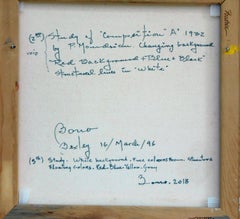 (2nd) Study of "Composition "A" 1932
by P. Mondrian. changing background
Red Background + Blue + Black
Structural lines in 'White'
Bono
Bexley 16/March/96
(3th) Study. White background. Five colores
Floating colors. Red-Blue-Yellow-Gray
3. 2018